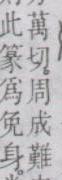 萬切周成難
此篆為免身